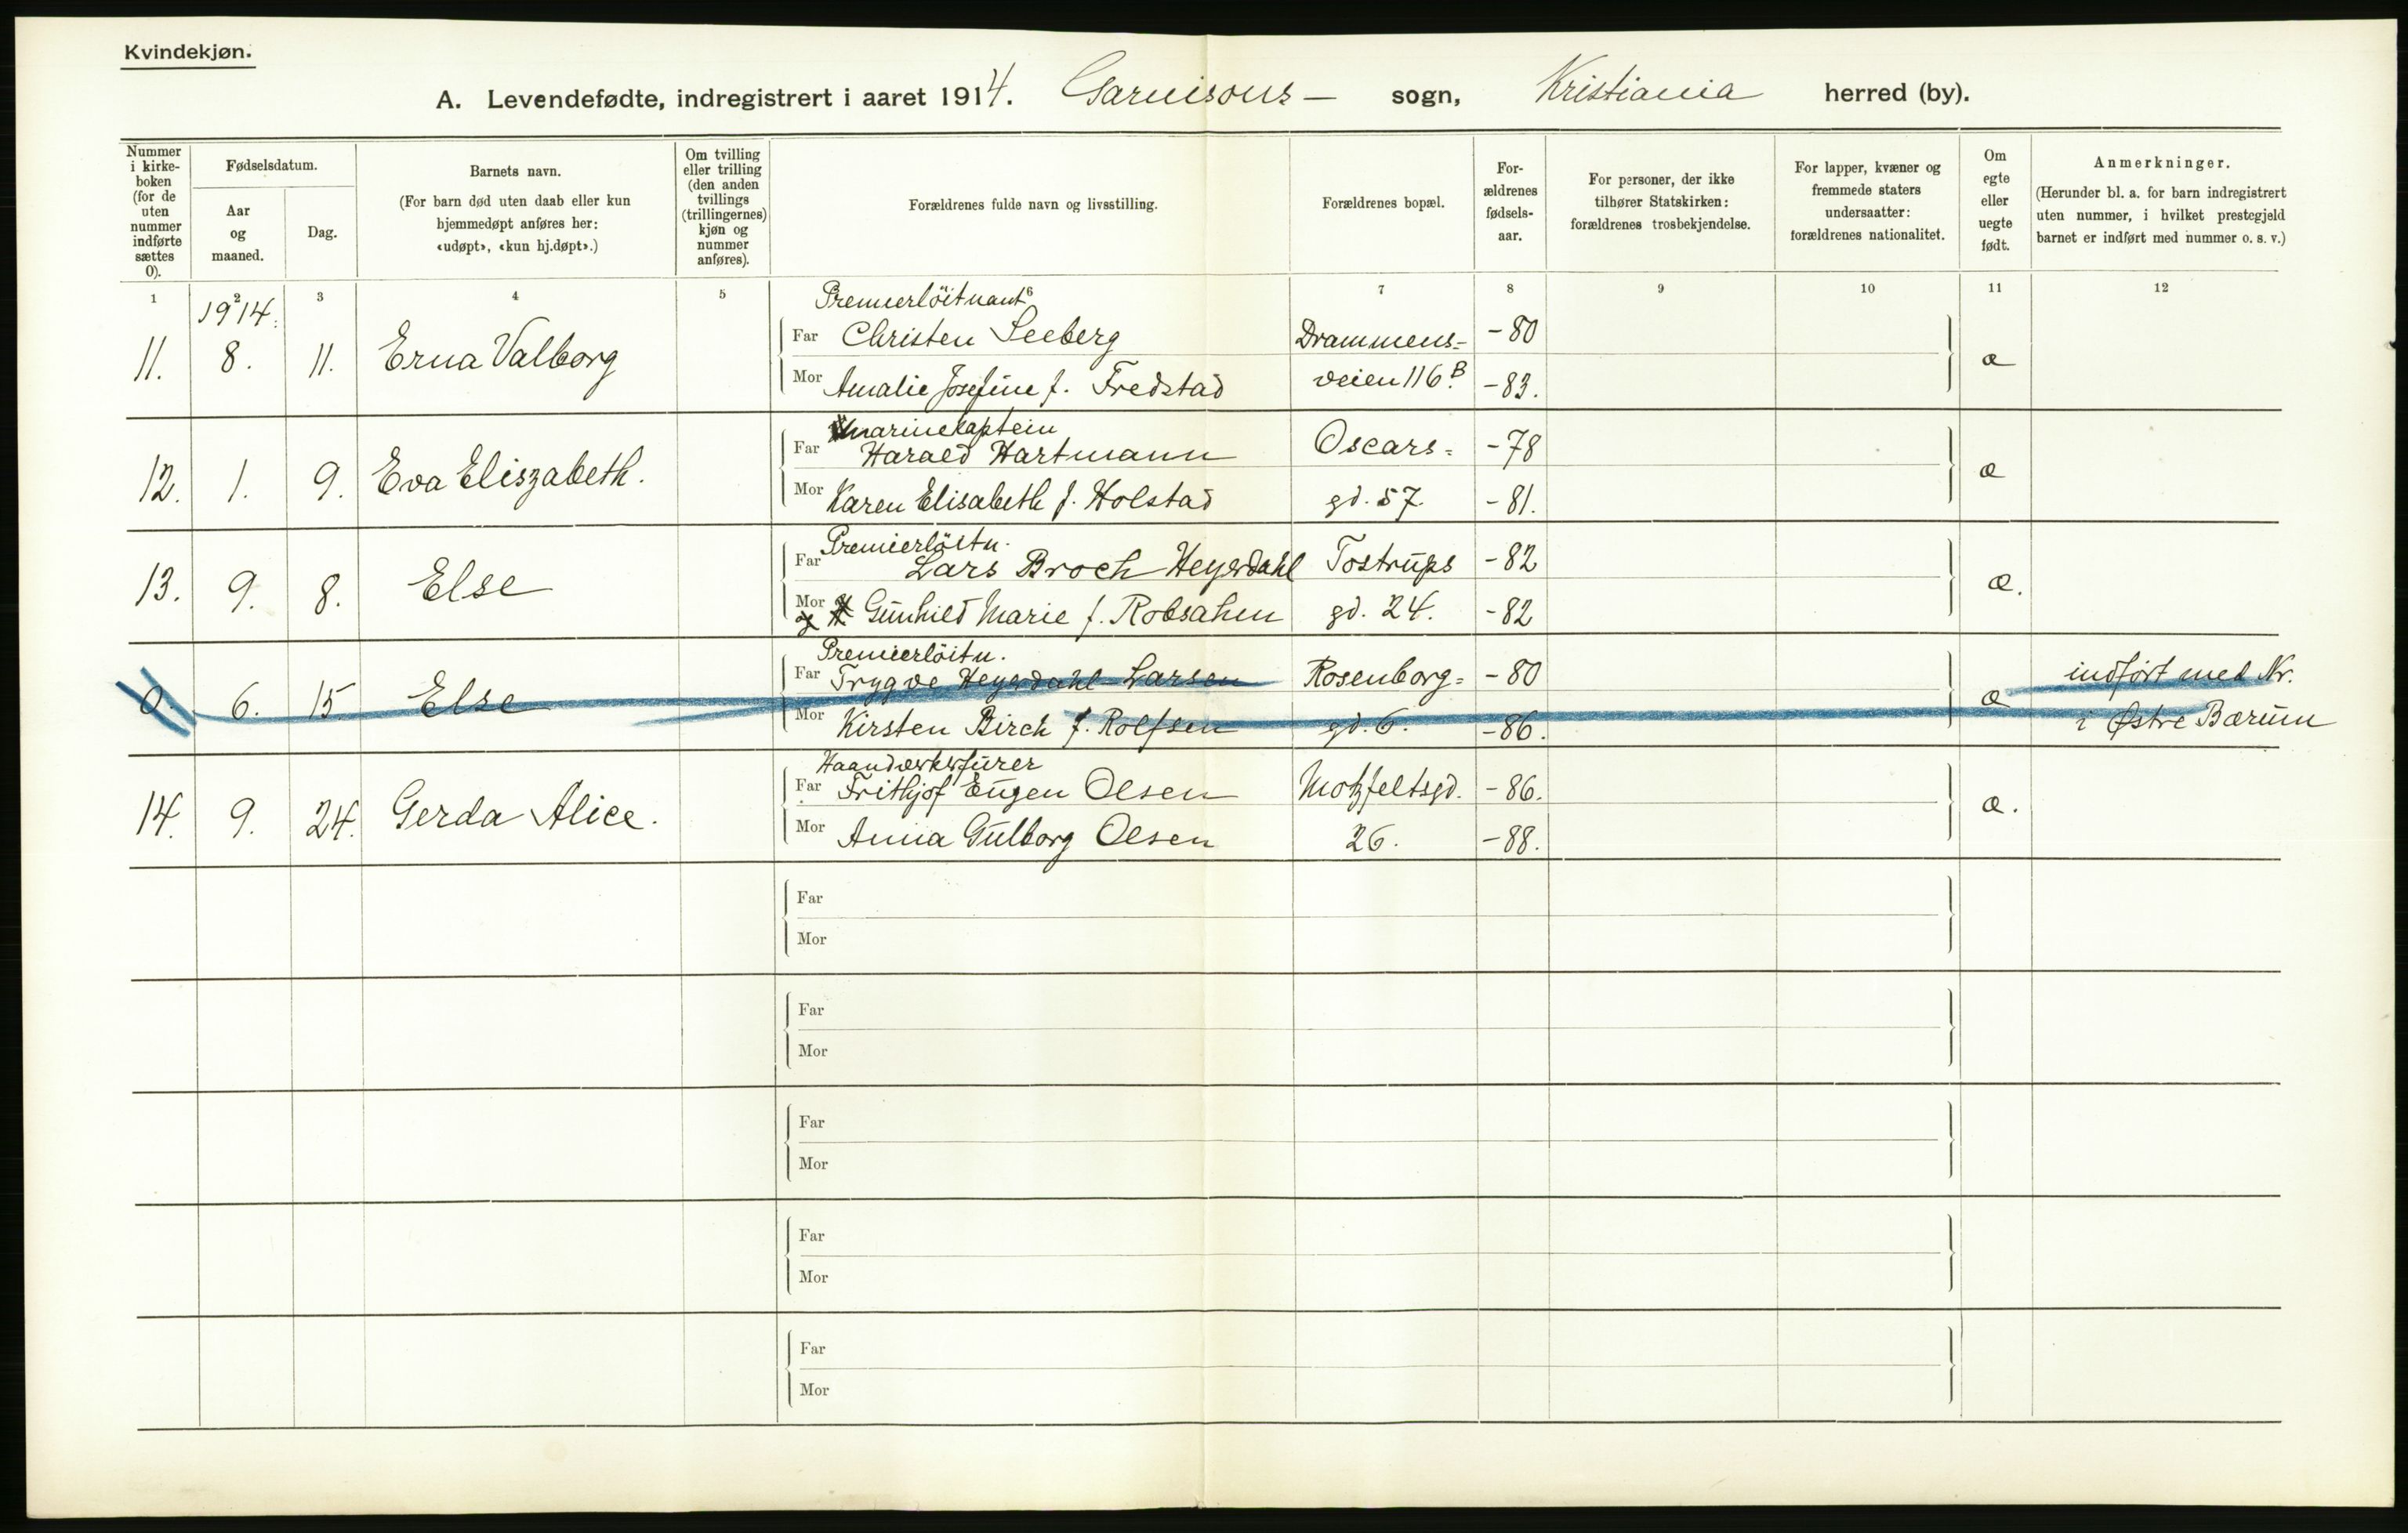 Kvindekjøn.
A. Levendefødte, indregistrert i aaret 1914. Garnisons- sogn, Kristiania herred (by).
Nummer i kirke- boken (for de uten nummer indførte sættes 0).
Fødselsdatum.
Aar og maaned.
Dag.
Barnets navn.
(For barn død uten daab eller kun hjemmedøpt anføres her: «udøpt», «kun hj.døpt».)
Om tvilling eller trilling (den anden tvillings (trillingernes) kjøn og nummer anføres).
Forældrenes fulde navn og livsstilling.
Forældrenes bopæl.
For- ældrenes fødsels- aar.
For personer, der ikke tilhører Statskirken: forældrenes trosbekjendelse.
For lapper, kvæner og fremmede staters undersaatter: forældrenes nationalitet.
Om egte eller uegte født.
Anmerkninger.
(Herunder bl. a. for barn indregistrert uten nummer, i hvilket prestegjeld barnet er indført med nummer o. s. v.)
1 2 3 4 5 6 7 8 9 10 11 12
1914:
Premierlöitnant
11. 8. 11. Erna Valborg Far Christen Seeberg Drammens= -80 æ
Mor Amalie Josefine f. Fredstad veien 116.B -83.
Marinekaptein
12. 1. 9. Eva Eliszabeth. Far Harald Hartmann Oscars= -78 æ
Mor Karen Elisabeth f. Holstad gd. 57. -81.
Premierlöitn.
13. 9. 8. Else Far Lars Broch Heyerdahl Tostrups -82 æ.
Mor Gunhild Marie f. Robsahm gd. 24. -82
Premierlöitn.
0. 6. 15 Else Far Trygve Heyerdahl-Larsen Rosenborg= -80 æ indført med Nr.
Mor Kirsten Birch f. Rolfsen gd. 6. -86. i Østre Bærum
Haandverksfurer
14. 9. 24. Gerda Alice. Far Frithjof Eugen Olsen Motzfeltsgd. -86. æ.
Mor Anna Gulborg Olsen 26. -88.
Far
Mor
Far
Mor
Far
Mor
Far
Mor
Far
Mor